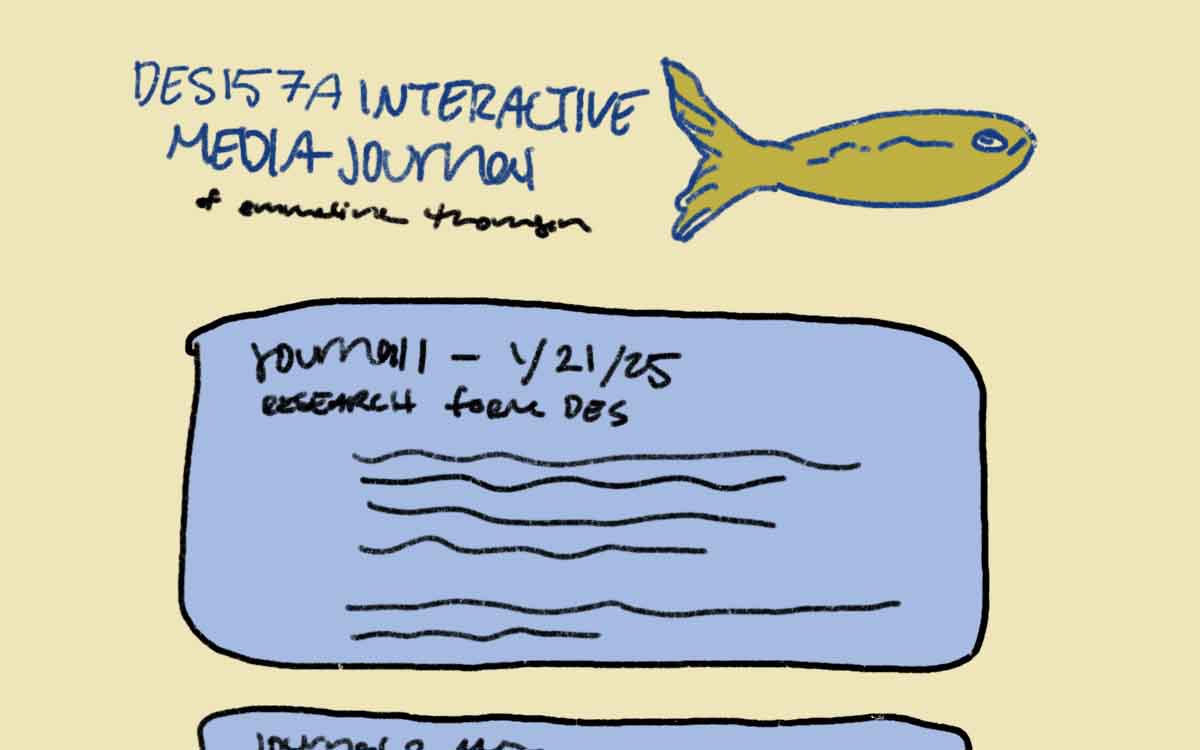 DES157A INTERACTIVE
MEDIA JOURNAL
of emmeline thomsen
JOURNAL 1 – 1/21/25
RESEARCH form DES
JOURNAL 2